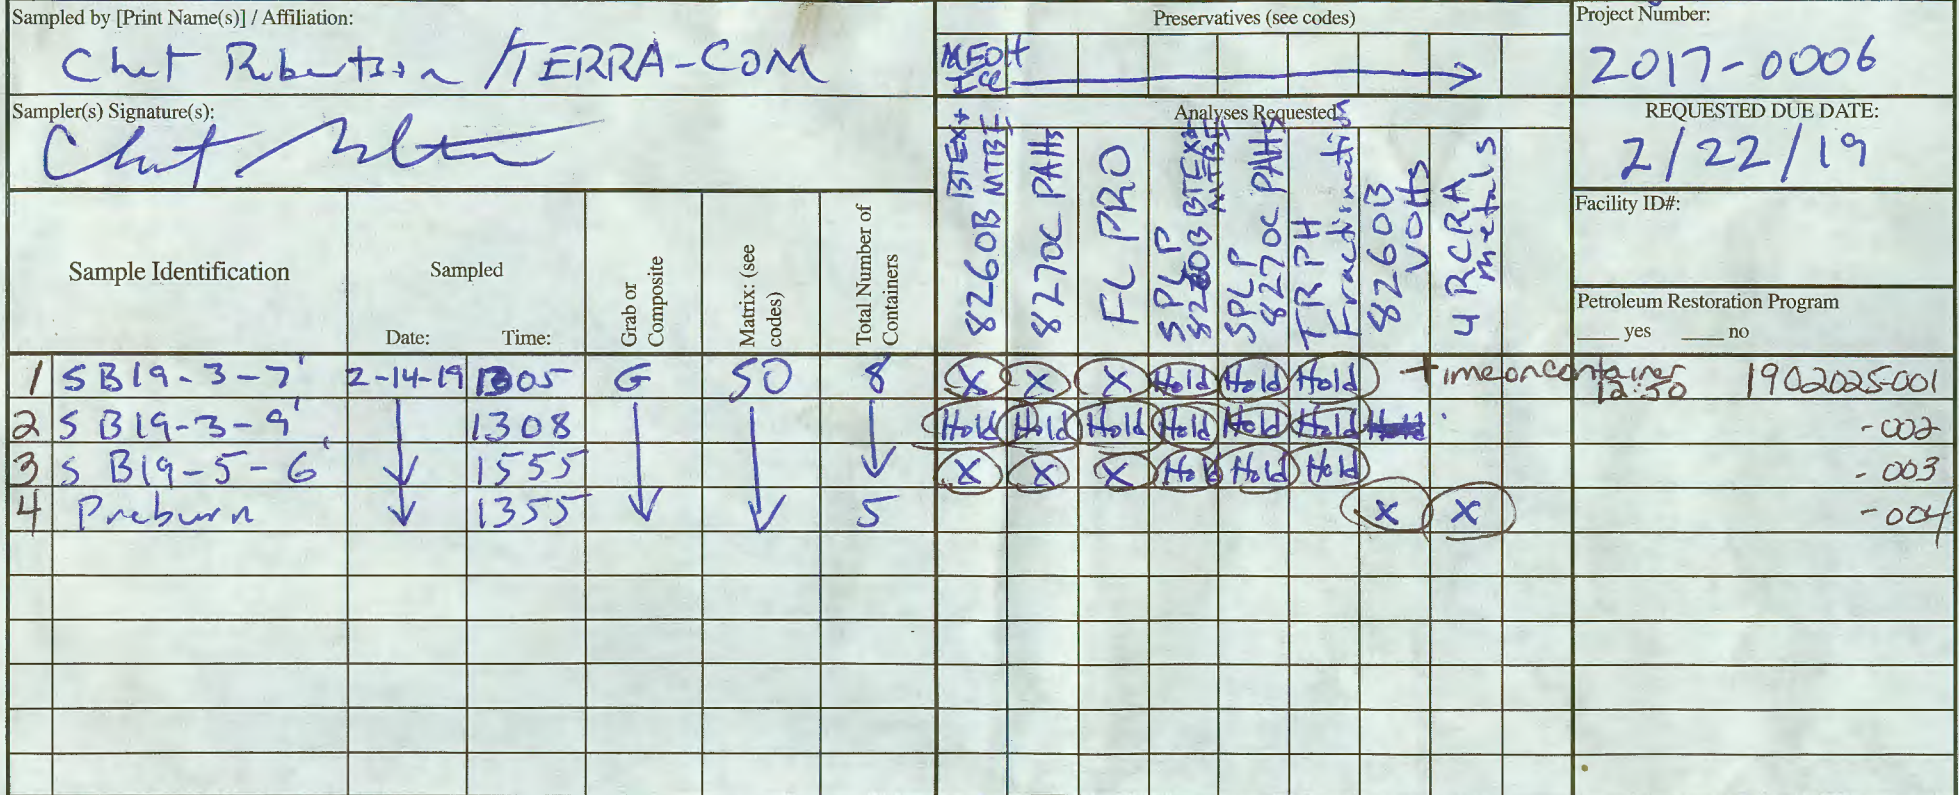 Sampled by [Print Name(s)] / Affiliation:
Chet Robertson /TERRA-COM
Preservatives (see codes)
MEOH
Ice
Project Number:
2017-0006
Sampler(s) Signature(s):
Analyses Requested
REQUESTED DUE DATE:
2/22/19
Facility ID#:
Petroleum Restoration Program
___ yes ___ no
Sample Identification
Sampled
Date:
Time:
Grab or
Composite
Matrix: (see
codes)
Total Number of
Containers
8260B BTEX+
MTBE
8270C PAHs
FL PRO
SPLP
8260B BTEX+
MTBE
SPLP
8270C PAHs
TRPH
Fractionation
8260B
VOHs
4 RCRA
metals
1 SB19-3-7' 2-14-19 1305 G SO 8 X X X Hold Hold Hold time on container 1902025-001
12:50
2 SB19-3-9' 1308 Hold Hold Hold Hold Hold Hold -002
3 SB19-5-6' 1555 X X X Hold Hold Hold -003
4 Preburn 1355 5 X X -004